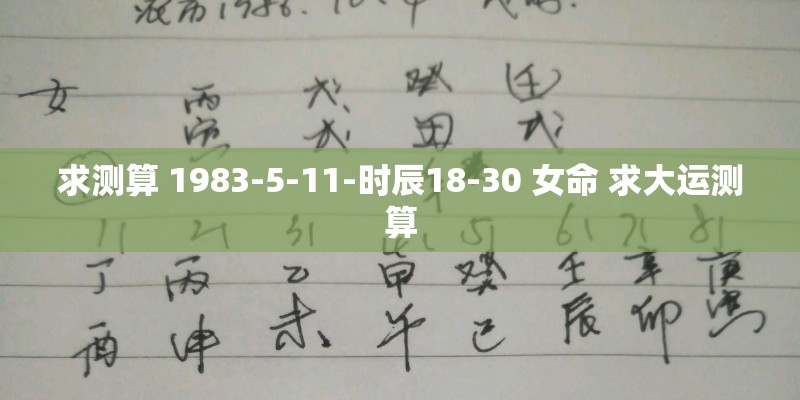 农历1986.10.4
女 丙 戊 癸 (壬)
寅 戌 田 戌
求测算 1983-5-11-时辰18-30 女命 求大运测
算
11 21 31 51 61 71 81
丁 丙 乙 甲 癸 壬 辛 庚
酉 申 未 午 巳 辰 卯 寅